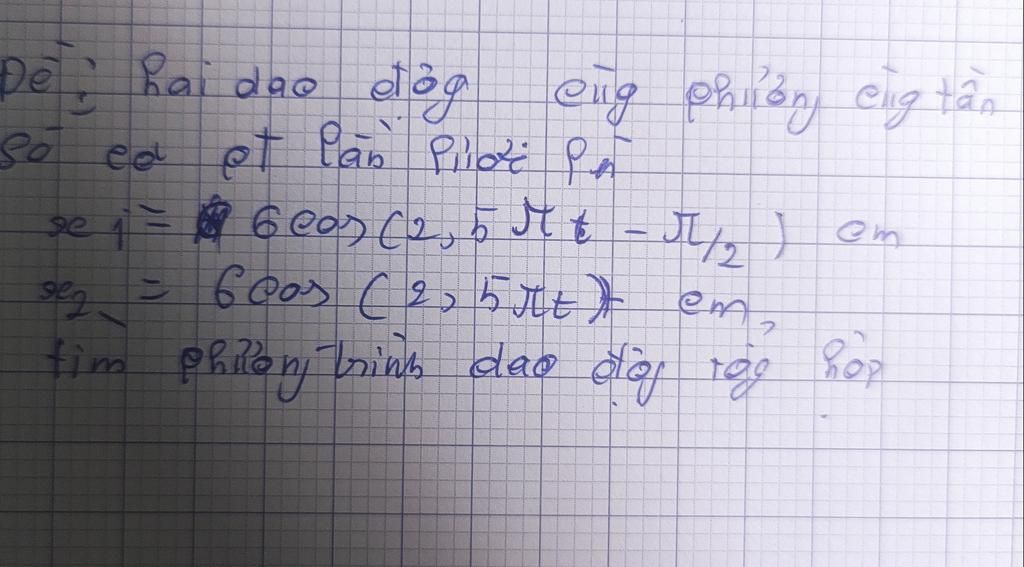 Đề: hai dao độg cùg phương cùg tần
số có pt lần lượt là
x1 = 6cos(2,5πt - π/2) cm
x2 = 6cos(2,5πt) cm,
tìm phương trình dao độg tổg hợp